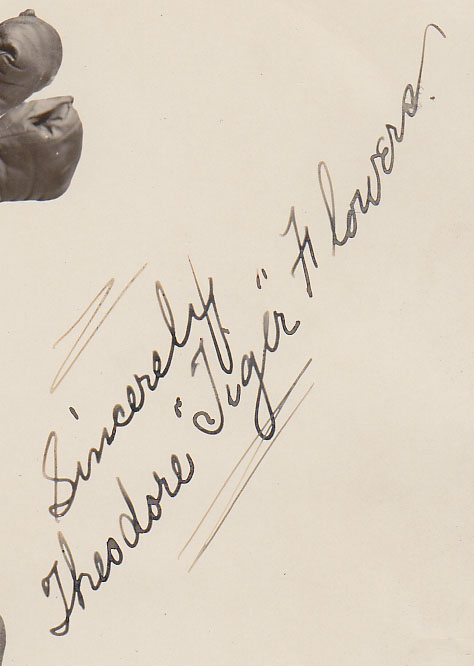 Sincerely
Theodore "Tiger" Flowers.